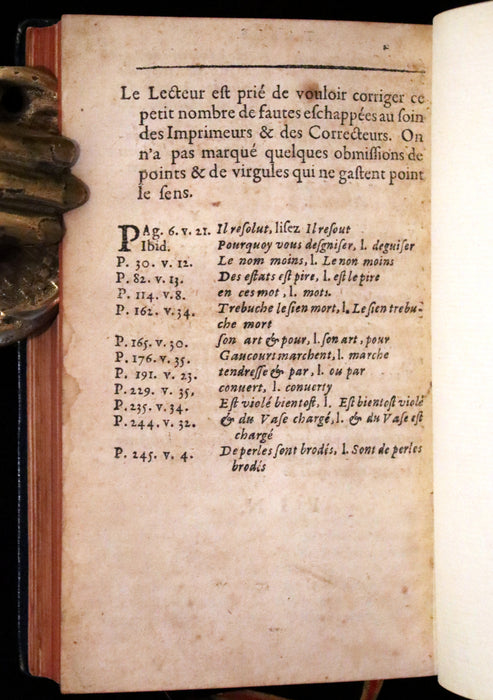 Le Lecteur eſt prié de vouloir corriger ce
petit nombre de fautes eſchappées au ſoin
des Imprimeurs & des Correcteurs. On
n'a pas marqué quelques obmiſſions de
points & de virgules qui ne gaſtent point
le ſens.
PAg. 6. v. 21. Il reſolut, liſez Il reſout
Ibid. Pourquoy vous deſguiſer, l. deguiſer
P. 30. v. 12. Le nom moins, l. Le non moins
P. 82. v. 13. Des eſtats eſt pire, l. eſt le pire
P. 114. v. 8. en ces mot, l. mots
P. 162. v. 34. Trebuche le ſien mort, l. Le ſien trebu-
che mort
P. 165. v. 30. ſon art & pour, l. ſon art, pour
P. 176. v. 35. Gaucourt marchent, l. marche
P. 191. v. 23. tendreſſe & par, l. ou par
P. 229. v. 35, conuert, l. conuerty
P. 235. v. 34. Eſt violé bientoſt, l. Eſt bientoſt violé
P. 244. v. 32. & du Vaſe chargé, l. & du Vaſe eſt
chargé
P. 245. v. 4. De perles ſont brodés, l. Sont de perles
brodés